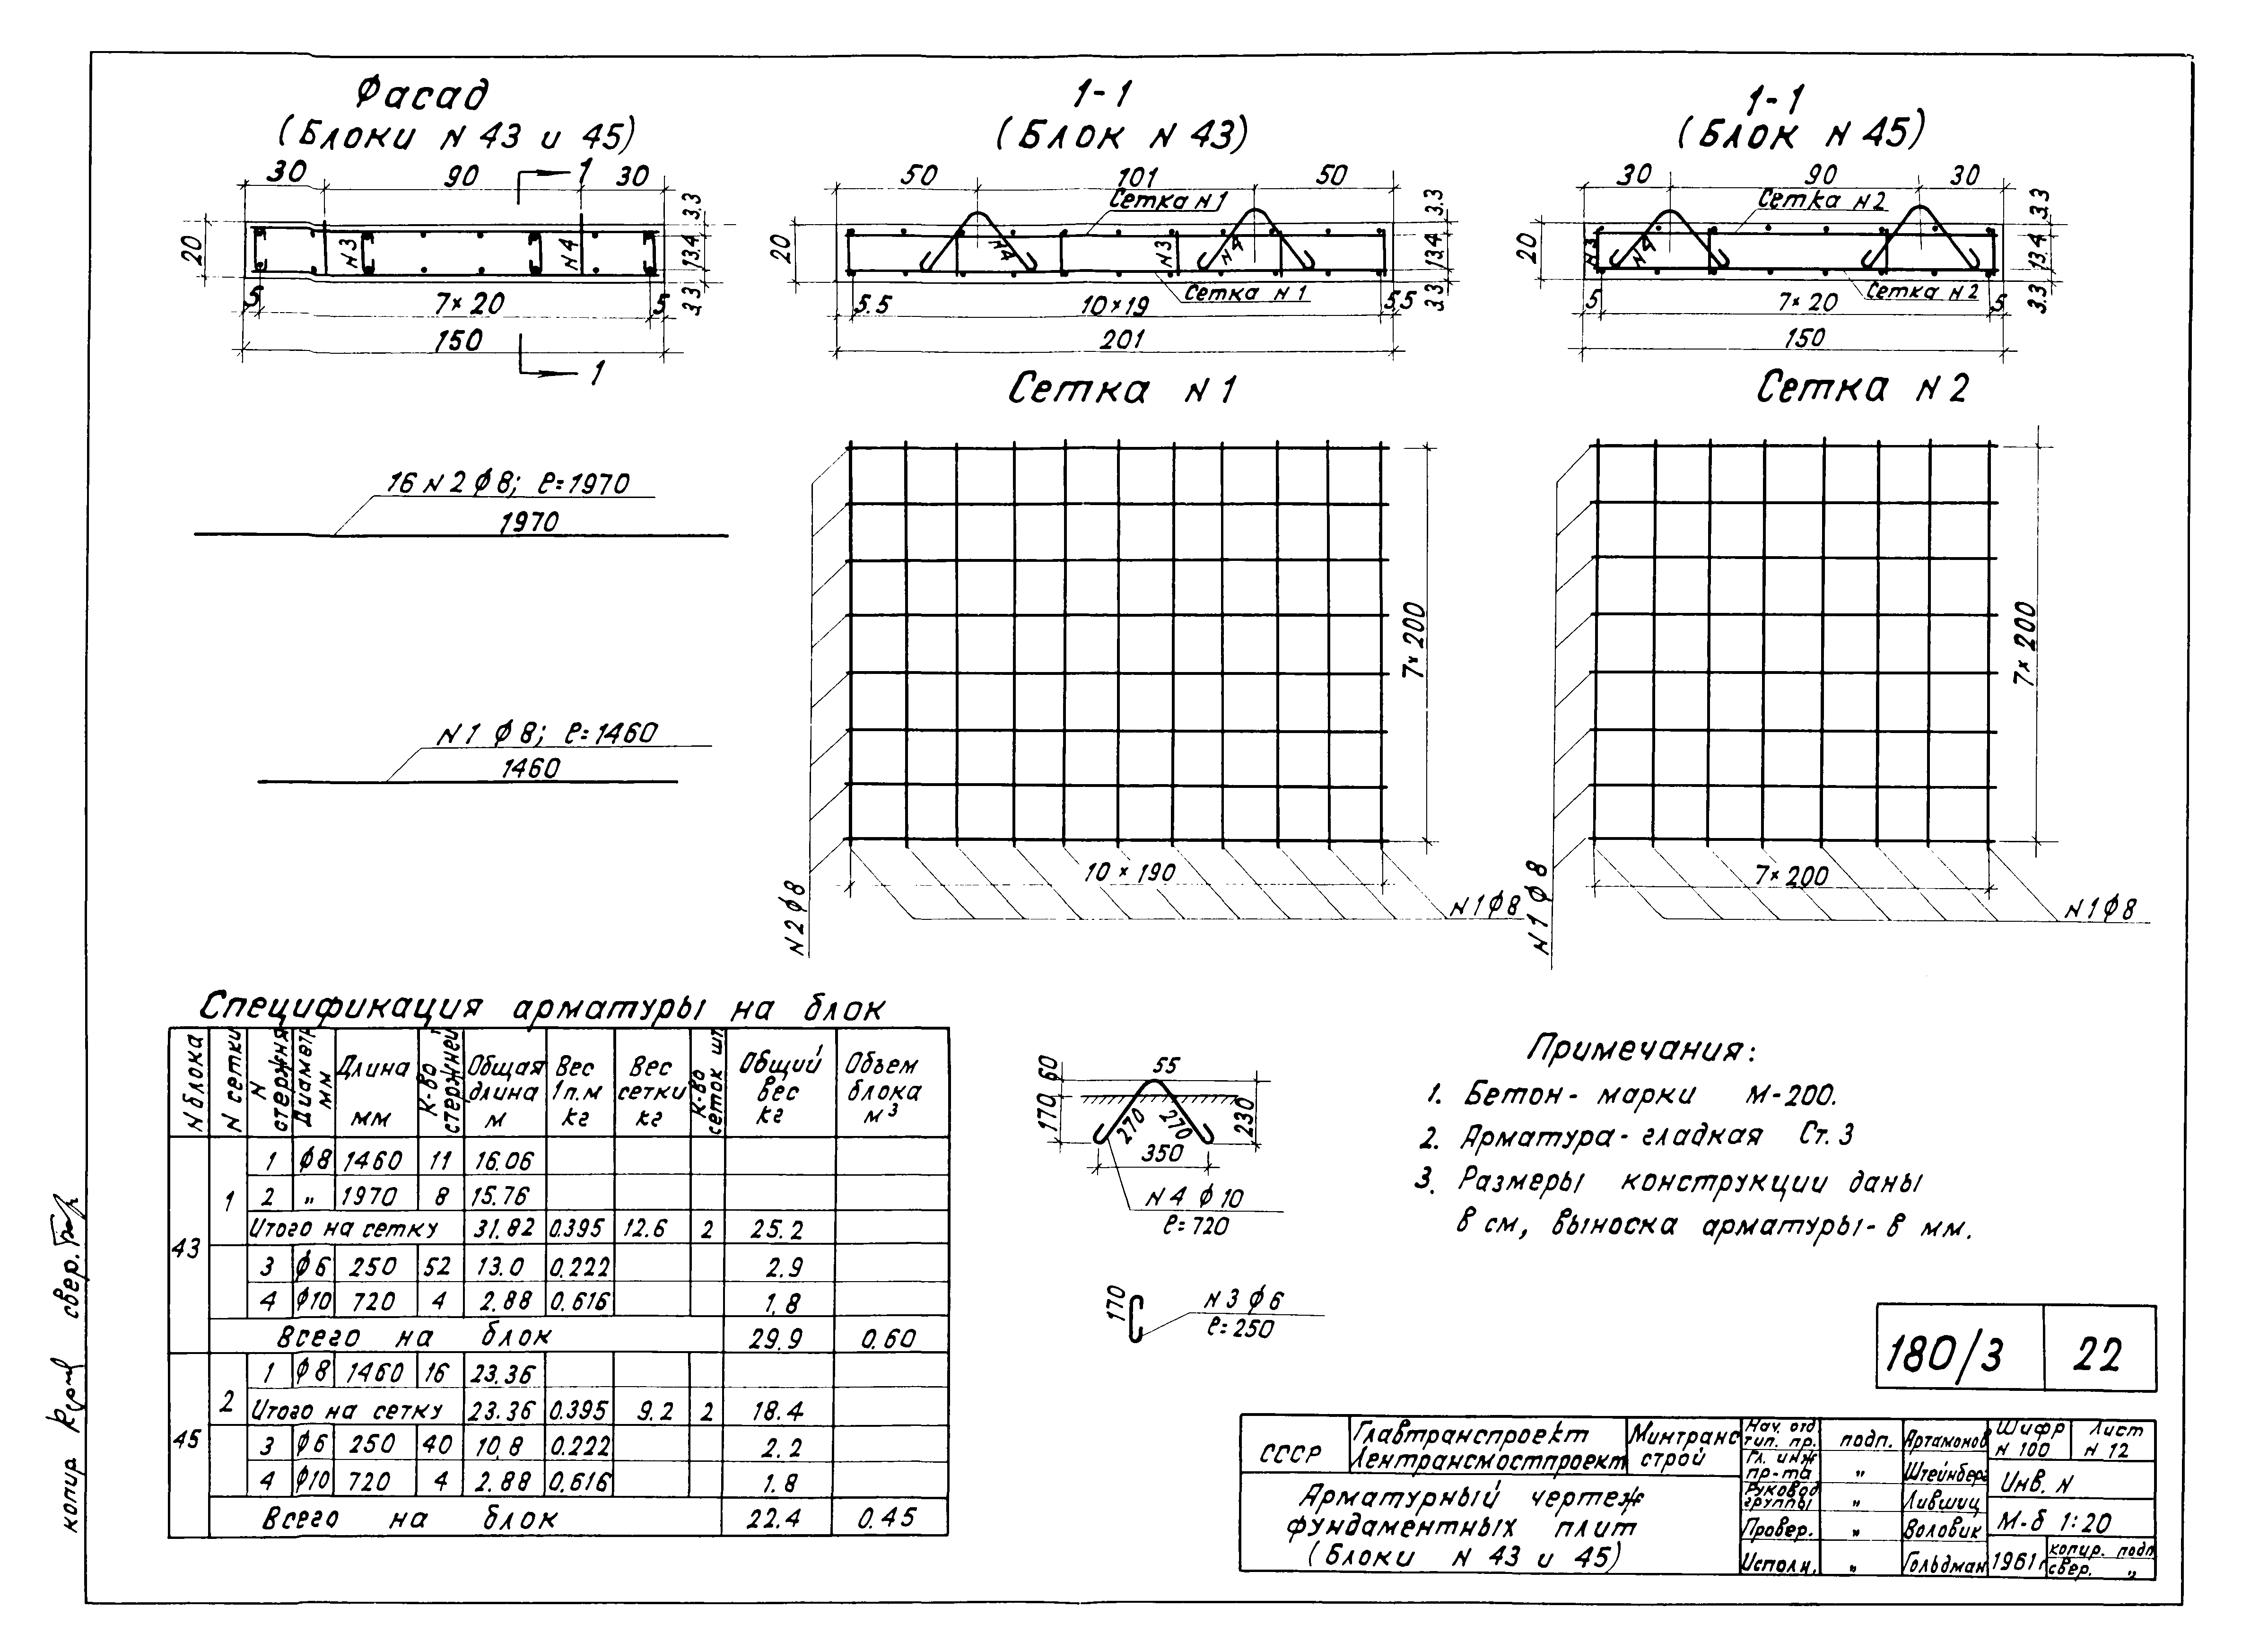 Фасад
(Блоки N 43 и 45)
30 90 1 30
20
N3
N4
3.3
13.4
3.3
5 7×20 5
150
1
1-1
(Блок N 43)
50 101 50
Сетка N1
20
N4
N3
N4
3.3
13.4
3.3
Сетка N1
5.5 10×19 5,5
201
1-1
(Блок N 45)
30 90 30
Сетка N2
20
N3
N4
3.3
13.4
3.3
Сетка N2
5 7×20 5
150
Сетка N1
Сетка N2
16 N2 ϕ8; ℓ=1970
1970
N1 ϕ8; ℓ=1460
1460
7×200
10×190
N2ϕ8
N1ϕ8
7×200
7×200
N1ϕ8
N1ϕ8
Спецификация арматуры на блок
N блока
N сетки
N стержня
Диаметр мм
Длина мм
К-во стержней
Общая длина м
Вес 1п.м кг
Вес сетки кг
К-во сеток шт
Общий вес кг
Объем блока м³
43
1
1 ϕ8 1460 11 16.06
2 " 1970 8 15.76
Итого на сетку 31.82 0.395 12.6 2 25.2
3 ϕ6 250 52 13.0 0.222 2.9
4 ϕ10 720 4 2.88 0.616 1.8
Всего на блок 29.9 0.60
45
2
1 ϕ8 1460 16 23.36
Итого на сетку 23.36 0.395 9.2 2 18.4
3 ϕ6 250 40 10,8 0.222 2.2
4 ϕ10 720 4 2.88 0.616 1.8
Всего на блок 22.4 0.45
60
170
55
270
270
230
350
N4 ϕ10
ℓ=720
170
N3 ϕ6
ℓ=250
Примечания:
1. Бетон - марки М-200.
2. Арматура - гладкая Ст.3
3. Размеры конструкции даны
в см, выноска арматуры - в мм.
180/3 22
СССР
Главтранспроект
Лентрансмостпроект
Минтранс
строй
Арматурный чертеж
фундаментных плит
(Блоки N 43 и 45)
Нач. отд. тип. пр. подп. Артамонов
Гл. инж пр-та " Штейнберг
Руковод группы " Лившиц
Провер. " Воловик
Исполн. " Гольдман
Шифр N 100
Лист N 12
Инв. N
М-б 1:20
1961г
копир. подп
свер. "
копир
свер.